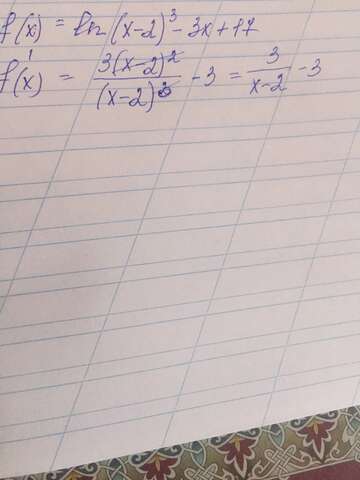 f(x) = ln(x-2)³ - 3x + 17
f'(x) = 3(x-2)²/(x-2)³ - 3 = 3/(x-2) - 3